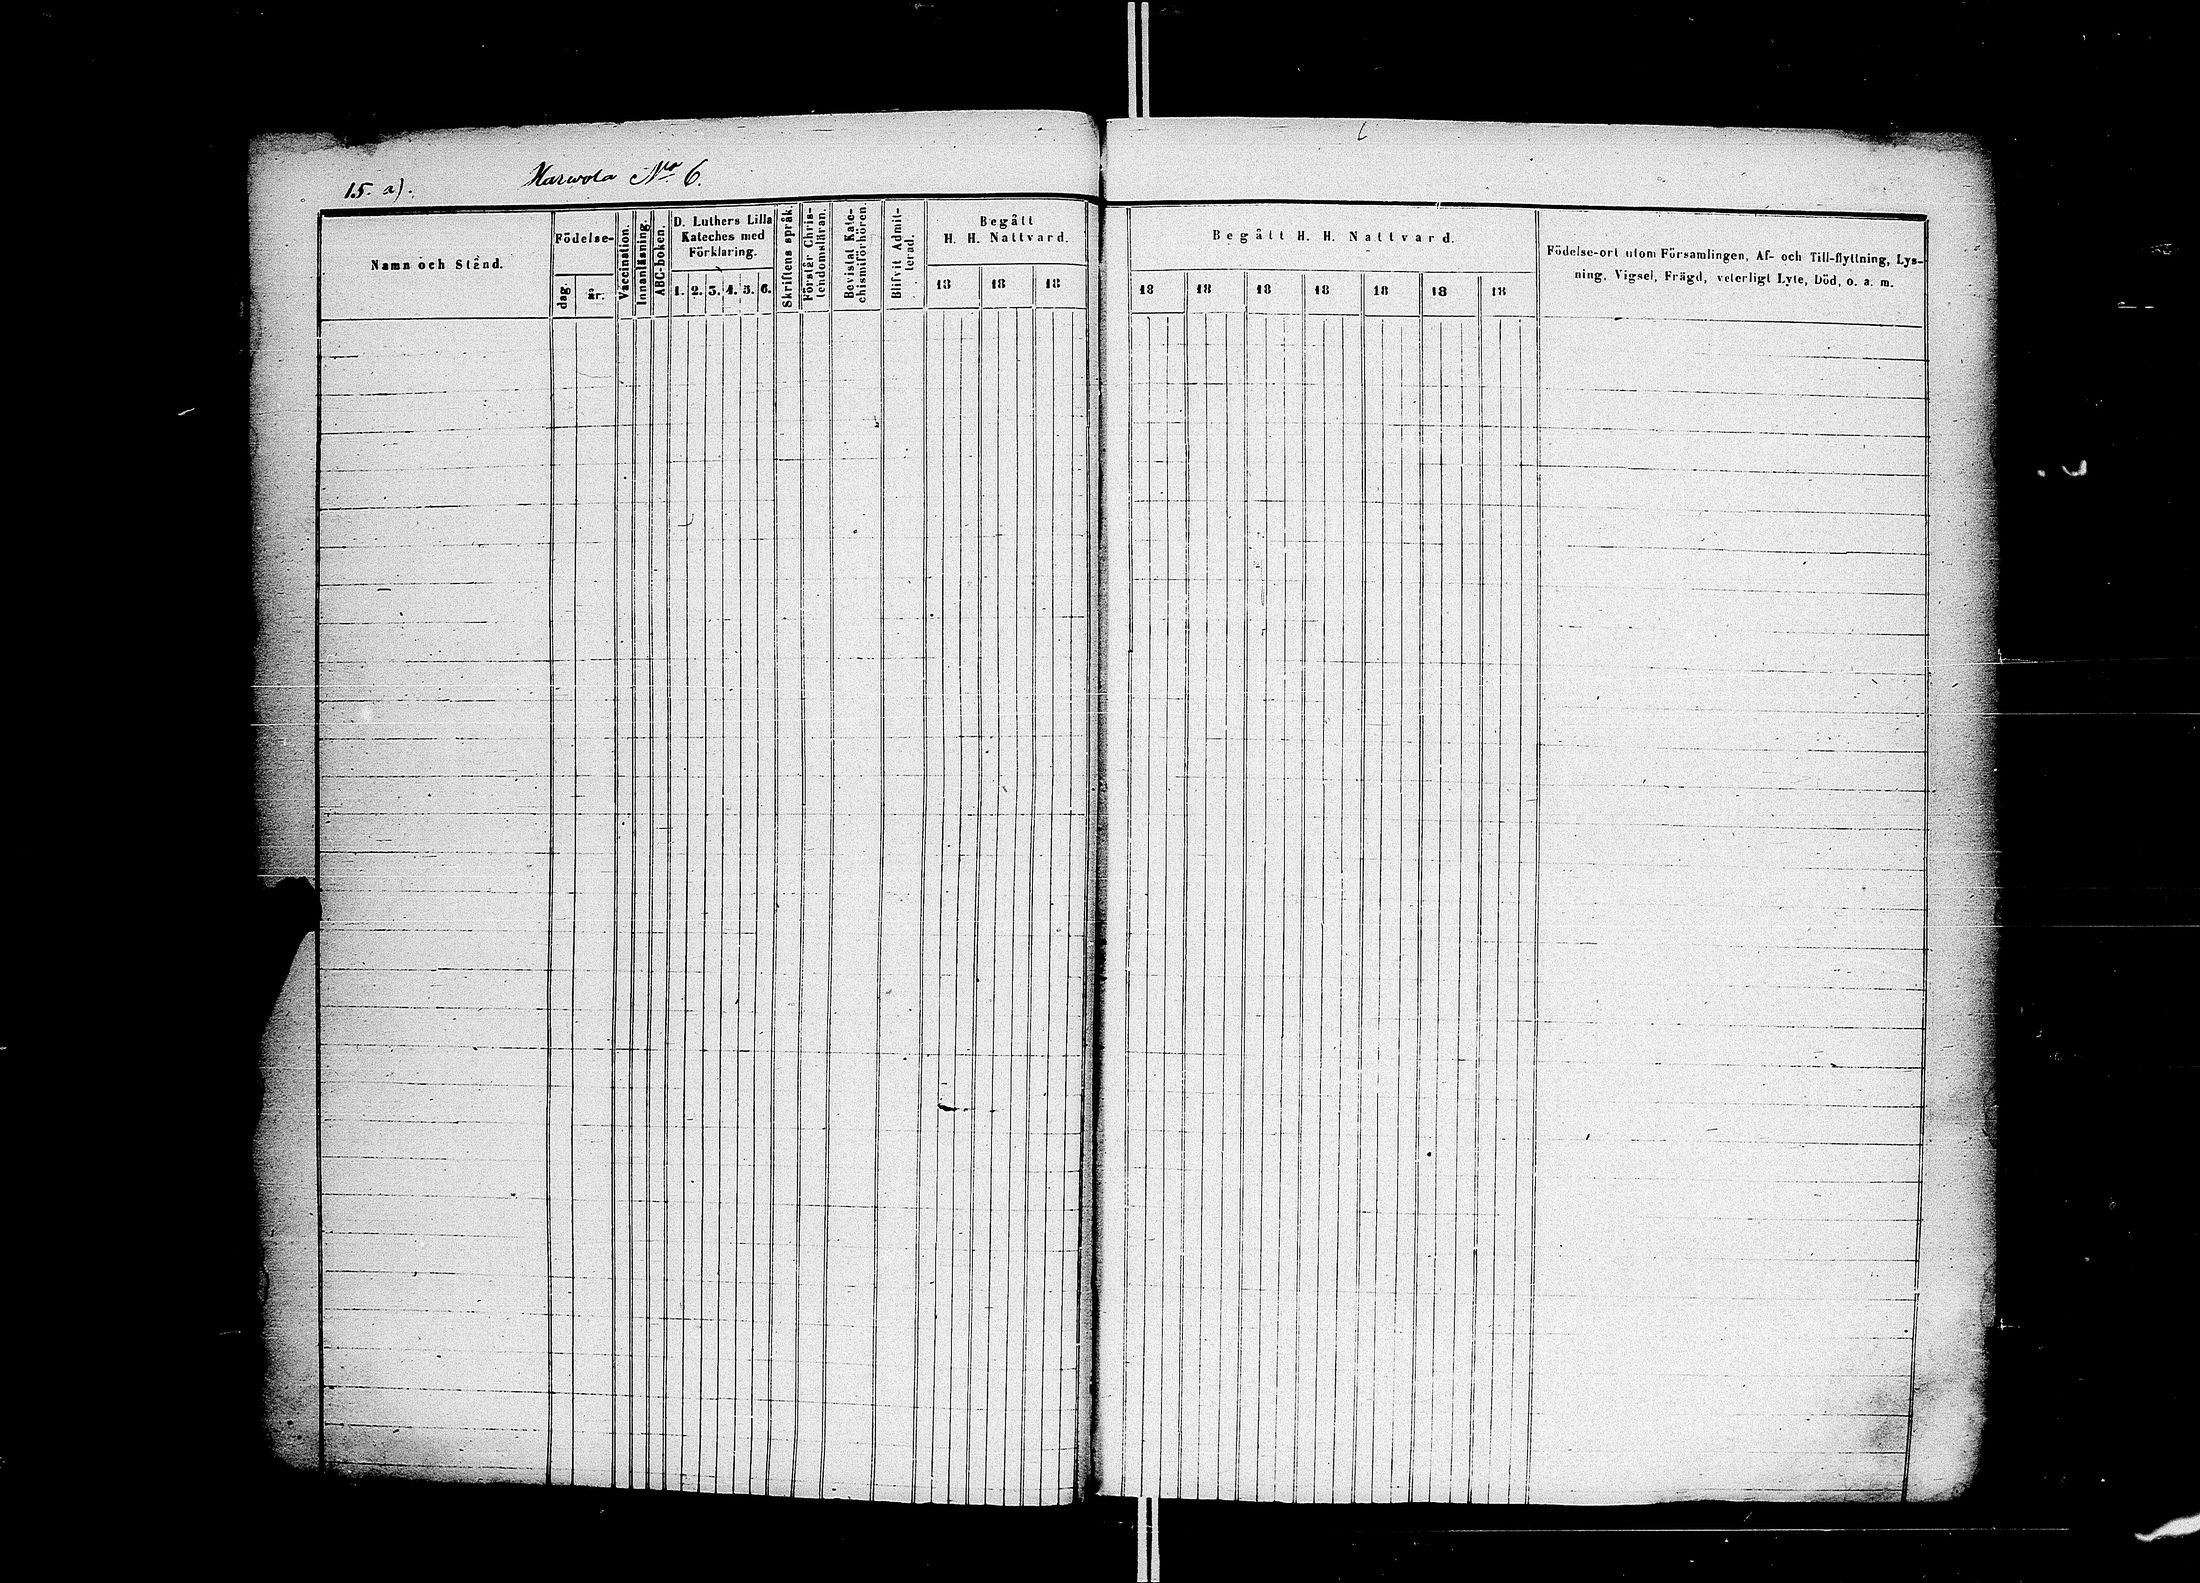 15. a).
Harwola No 6.
Namn och Stånd.
Födelse-
dag.
år.
Vaccination.
Innanläsning.
ABC-boken.
D. Luthers Lilla
Kateches med
Förklaring.
1. 2. 3. 4. 5. 6.
Skriftens språk.
Förstår Chris-
tendomsläran.
Bevistat Kate-
chismiförhören.
Blifvit Admit-
terad.
Begått
H. H. Nattvard.
18 18 18
Begått H. H. Nattvard.
18 18 18 18 18 18 18
Födelse-ort utom Församlingen, Af- och Till-flyttning, Lys-
ning, Vigsel, Frägd, veterligt Lyte, Död, o. a. m.